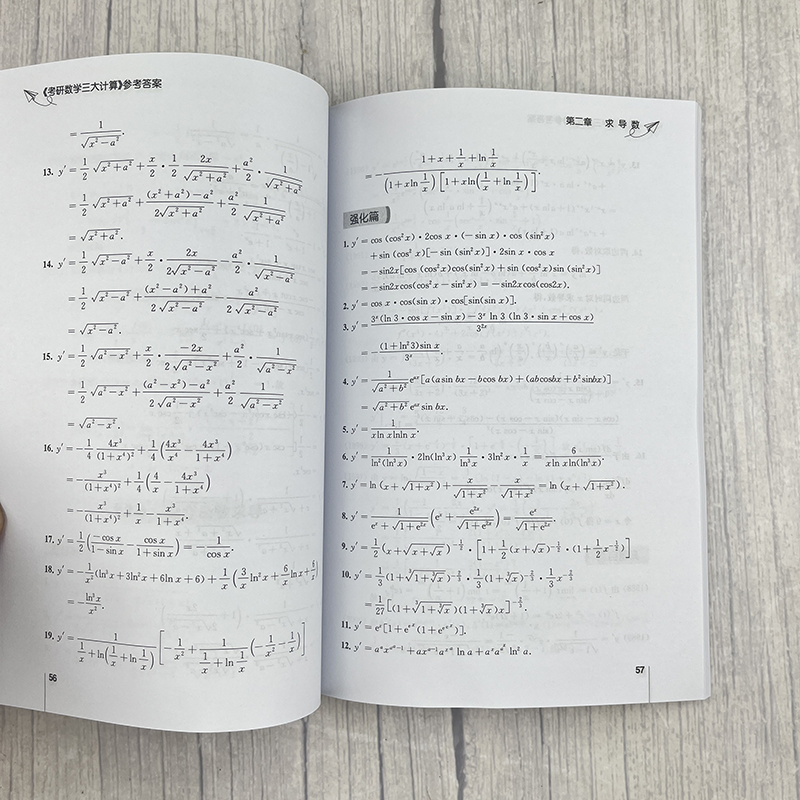 《考研数学三大计算》参考答案
= 1/√(x²−a²).
13. y′ = 1/2 √(x²+a²) + x/2 · 1/2 2x/√(x²+a²) + a²/2 · 1/√(x²+a²)
= 1/2 √(x²+a²) + ((x²+a²)−a²)/(2√(x²+a²)) + a²/2 1/√(x²+a²)
= √(x²+a²).
14. y′ = 1/2 √(x²−a²) + x/2 · 2x/(2√(x²−a²)) − a²/2 · 1/√(x²−a²)
= 1/2 √(x²−a²) + ((x²−a²)+a²)/(2√(x²−a²)) − a²/(2√(x²−a²))
= √(x²−a²).
15. y′ = 1/2 √(a²−x²) + x/2 · −2x/(2√(a²−x²)) + a²/2 · 1/√(a²−x²)
= 1/2 √(a²−x²) + ((a²−x²)−a²)/(2√(a²−x²)) + a²/2 1/√(a²−x²)
= √(a²−x²).
16. y′ = −1/4 4x³/(1+x⁴)² + 1/4 (4x³/x⁴ − 4x³/(1+x⁴))
= −x³/(1+x⁴)² + 1/4 (4/x − 4x³/(1+x⁴))
= −x³/(1+x⁴)² + 1/x − x³/(1+x⁴).
17. y′ = 1/2 (−cos x/(1−sin x) − cos x/(1+sin x)) = −1/cos x.
18. y′ = −1/x² (ln³x+3ln²x+6ln x+6) + 1/x (3/x ln²x + 6/x ln x + 6/x)
= −ln³x/x².
19. y′ = 1/(1/x + ln(1/x + ln 1/x)) [−1/x² + 1/(1/x + ln 1/x) (−1/x² − 1/x)]
56
第二章 求导数
= −(1+x+1/x+ln 1/x)/((1+xln 1/x)[1+xln(1/x+ln 1/x)]).
强化篇
1. y′ = cos (cos²x)·2cos x·(−sin x)·cos (sin²x)
+sin (cos²x)[−sin (sin²x)]·2sin x·cos x
= −sin2x[cos (cos²x)cos(sin²x)+sin (cos²x)sin (sin²x)]
= −sin2xcos(cos²x−sin²x) = −sin2xcos(cos2x).
2. y′ = cos x·cos(sin x)·cos[sin(sin x)].
3. y′ = (3ˣ(ln 3·cos x−sin x)−3ˣ ln 3 (ln 3·sin x+cos x))/3²ˣ
= −(1+ln²3)sin x/3ˣ.
4. y′ = 1/√(a²+b²) eᵃˣ[a(asin bx−bcos bx)+(abcosbx+b²sinbx)]
= √(a²+b²) eᵃˣ sin bx.
5. y′ = 1/(xln xlnln x).
6. y′ = 1/ln²(ln³x)·2ln(ln³x) 1/ln³x·3ln²x·1/x = 6/(xln xln(ln³x)).
7. y′ = ln (x+√(1+x²)) + x/√(1+x²) − x/√(1+x²) = ln (x+√(1+x²)).
8. y′ = 1/(eˣ+√(1+e²ˣ)) (eˣ + e²ˣ/√(1+e²ˣ)) = eˣ/√(1+e²ˣ).
9. y′ = 1/2 (x+√(x+√x))^(−1/2)·[1+1/2 (x+√x)^(−1/2)·(1+1/2 x^(−1/2))]
10. y′ = 1/3 (1+∛(1+∛x))^(−2/3)·1/3 (1+∛x)^(−2/3)·1/3 x^(−2/3)
= 1/27 [(1+∛(1+∛x))(1+∛x)x]^(−2/3).
11. y′ = eˣ[1+e^(eˣ)(1+e^(e^(eˣ)))].
12. y′ = aᵃx^(aᵃ−1)+ax^(a−1)a^(xᵃ) ln a+aˣa^(aˣ) ln²a.
57